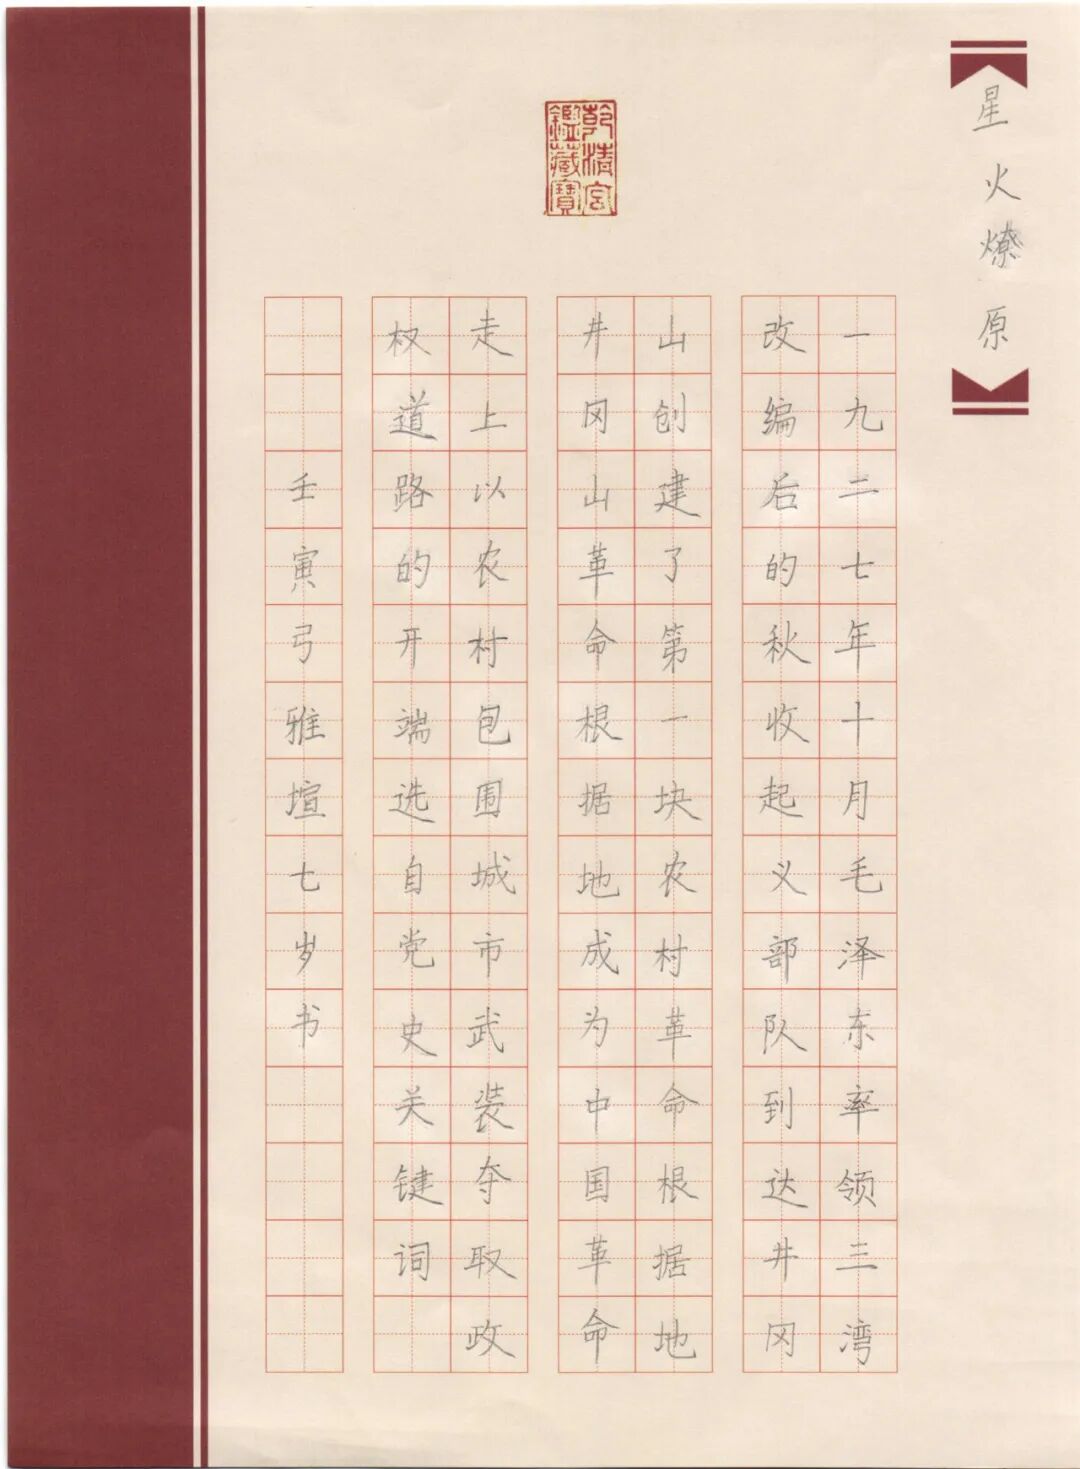 星火燎原
一九二七年十月毛泽东率领三湾
改编后的秋收起义部队到达井冈
山创建了第一块农村革命根据地
井冈山革命根据地成为中国革命
走上以农村包围城市武装夺取政
权道路的开端选自党史关键词
壬寅弓雅壇七岁书
乾清宫
鑑藏寳